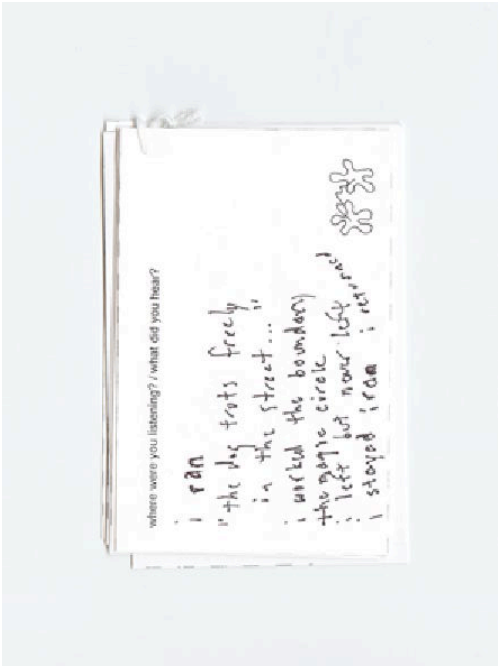 where were you listening? / what did you hear?
i ran
"the dog trots freely
in the street..."
i worked the boundary
the magic circle
i left but never left
i stayed i ran i returned